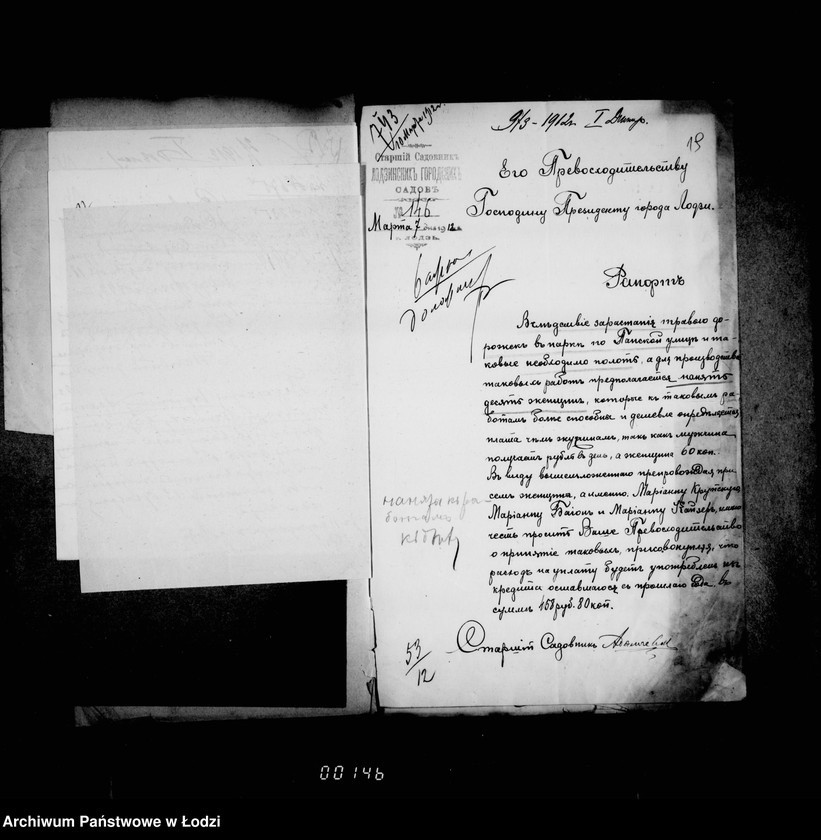 743
10 Марта 1912 г.
9/3 - 1912 г. I
19
Старшій Садовникъ
ЛОДЗИНСКИХЪ ГОРОДСКИХЪ
САДОВЪ
№ 146
Марта 7 дня 1912 г.
г. ЛОДЗЬ.
Его Превосходительству
Господину Президенту города Лодзи.
Рапортъ
Вслѣдствіе зарастанія травою до-
рожекъ въ паркѣ по Панской улицѣ и та-
ковые необходимо полоть, а для производства
таковыхъ работъ предполагается нанять
десять женщинъ, которые къ таковымъ ра-
ботамъ болѣе способны и дешевле опредѣляется
плата чѣмъ мужчинамъ, такъ какъ мужчина
получаетъ рубль въ день, а женщина 60 коп.
Въ виду вышеизложеннаго препровождая при
семъ женщинъ, а именно: Маріанну Крутскую,
Маріанну Баіонъ и Маріанну Кайзеръ, имѣю
честь просить Ваше Превосходительство
о принятіе таковыхъ, присовокупляя, что
расходъ на уплату будетъ употребленъ изъ
кредита оставшагося съ прошлаго года въ
суммѣ 158 руб. 80 коп.
Старшій Садовникъ
53/12
00146
Archiwum Państwowe w Łodzi